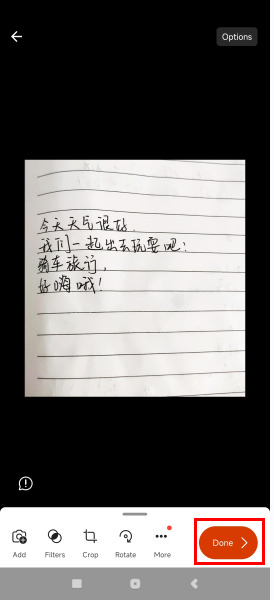 Options
今天天气很好.
我们一起出去玩耍吧:
骑车旅行,
好嗨哦!
Add
Filters
Crop
Rotate
More
Done